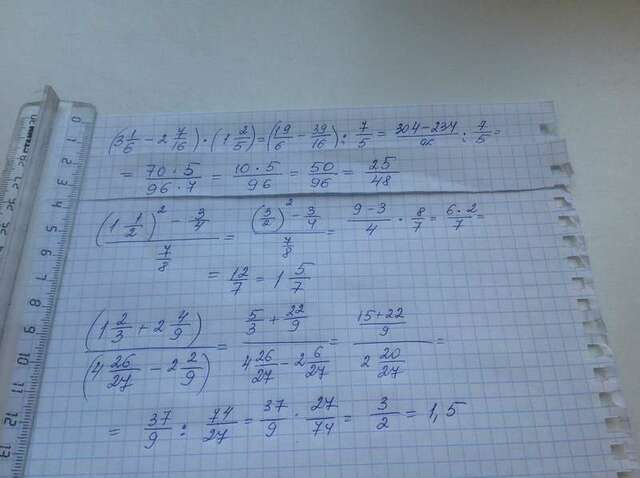 (3 1/6 − 2 7/16) : (1 2/5) = (19/6 − 39/16) : 7/5 = (304−234)/96 : 7/5 =
= (70·5)/(96·7) = (10·5)/96 = 50/96 = 25/48
((1 1/2)² − 3/4)/(7/8) = ((3/2)² − 3/4)/(7/8) = (9−3)/4 · 8/7 = (6·2)/7 =
= 12/7 = 1 5/7
(1 2/3 + 2 4/9)/(4 26/27 − 2 2/9) = (5/3 + 22/9)/(4 26/27 − 2 6/27) = ((15+22)/9)/(2 20/27) =
= 37/9 : 74/27 = 37/9 · 27/74 = 3/2 = 1,5
0 1 2 3 4 5 6 7 8 9 10 11 12 13